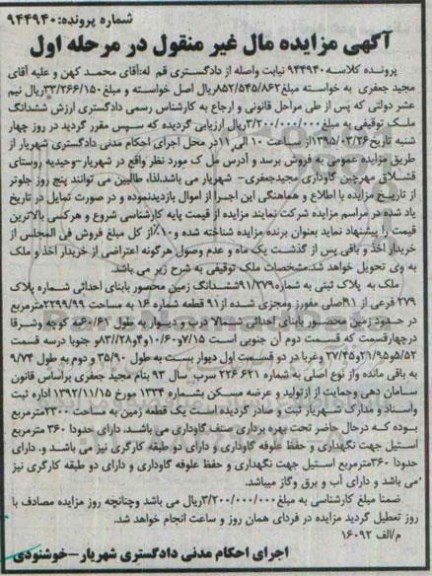 شماره پرونده:۹۴۴۹۴۰
آگهی مزایده مال غیر منقول در مرحله اول
پرونده کلاسه ۹۴۴۹۴۰ نیابت واصله از دادگستری قم له:آقای محمد کهن و علیه آقای
مجید جعفری به خواسته مبلغ۸۵۲/۵۴۵/۸۶۲ریال اصل خواسته و مبلغ۳۳/۲۶۶/۱۵۰ریال نیم
عشر دولتی که پس از طی مراحل قانونی و ارجاع به کارشناس رسمی دادگستری ارزش ششدانگ
ملک توقیفی به مبلغ۳/۲۰۰/۰۰۰/۰۰۰ریال ارزیابی گردیده که سپس مقرر گردید در روز چهار
شنبه تاریخ۱۳۹۵/۰۳/۲۶از ساعت ۱۰ الی ۱۱در محل اجرای احکام مدنی دادگستری شهریار از
طریق مزایده عمومی به فروش برسد و آدرس مل ک مورد نظر واقع در شهریار-وحیدیه روستای
قشلاق مهرچین گاوداری مجیدجعفری- شهریار می باشد.لذا، طالبین می توانند پنج روز جلوتر
از تاریخ مزایده با اطلاع و هماهنگی این اجرا از اموال بازدیدنموده و در صورت تمایل در تاریخ
یاد شده در مراسم مزایده شرکت نمایند مزایده از قیمت پایه کارشناسی شروع و هرکسی بالاترین
قیمت را پیشنهاد نماید بعنوان برنده مزایده شناخته شده و۱۰٪از کل مبلغ فروش فی المجلس از
خریدار اخذ و باقی پس از گذشت یک ماه و عدم وصول هرگونه اعتراضی از خریدار اخذ و ملک
به وی تحویل خواهد شد.مشخصات ملک توقیفی به شرح زیر می باشد.
ملک به پلاک ثبتی به شماره۹۱/۲۷۹ششدانگ زمین محصور بابنای احداثی شماره پلاک
۲۷۹ فرعی از ۹۱اصلی مفروز ومجزی شده از۹۱ قطعه شماره ۱۶ به مساحت ۲۲۹۹/۹۹مترمربع
در حدود زمین محصور بابنای احداثی درب و دیوار به طول ۶۰/۶۱به کوچه وشرقا
درچهارقسمت که قسمت دوم آن جنوبی است ۷/۱۵و۱۰/۶۰و۴و۲۸/۸۳و جنوبا درسه قسمت
۵/۵۲و۲۱/۹۵و۲۷/۴۵ وغربا در دو قسمت اول دیوار بست به طول ۳۵/۹۰ و دوم به طول ۹/۷۴
به باقی مانده واز نوع اصلی به شماره ۶۲۱ ۲۲۶ سرب سال ۹۳ بنام مجید جعفری براساس قانون
سامان دهی وحمایت از ازتولید و عرضه مسکن بشماره ۱۳۳۴ مورخ ۱۳۹۲/۱۱/۱۵ اداره ثبت
واسناد و مدارک شهریار ثبت و صادر گردیده است یک قطعه زمین به مساحت ۲۳۰۰مترمربع
بوده که درحال حاضر تحت بهره برداری صنف گاوداری می باشد. دارای حدودا ۳۶۰ مترمربع
استیل جهت نگهداری و حفظ علوفه گاوداری و دارای دو طبقه کارگری نیز می باشد و. دارای
حدودا ۳۶۰مترمربع استیل جهت نگهداری و حفظ علوفه گاوداری و دارای دو طبقه کارگری نیز
می باشد و دارای آب و برق وگاز میباشد.
ضمنا مبلغ کارشناسی به مبلغ۳/۲۰۰/۰۰۰/۰۰۰ریال می باشد وچنانچه روز مزایده مصادف با
روز تعطیل گردید مزایده در فردای همان روز و ساعت انجام خواهد شد.
م/الف ۱۶۰۹۲
اجرای احکام مدنی دادگستری شهریار-خوشنودی